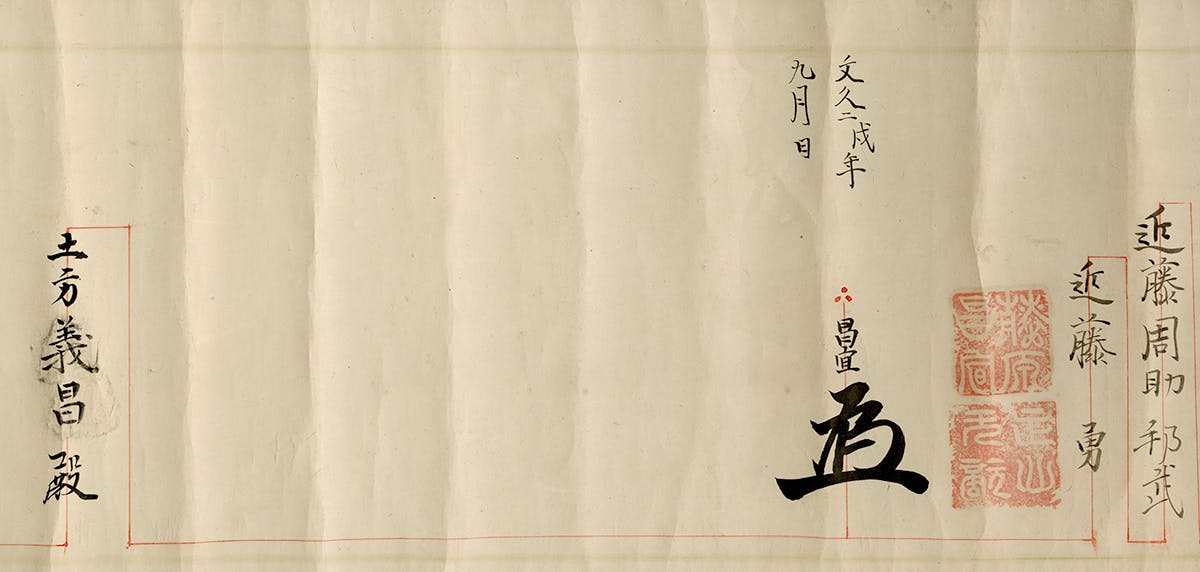 近藤周助邦武
近藤 勇
昌宜
文久二戌年
九月 日
土方義昌殿